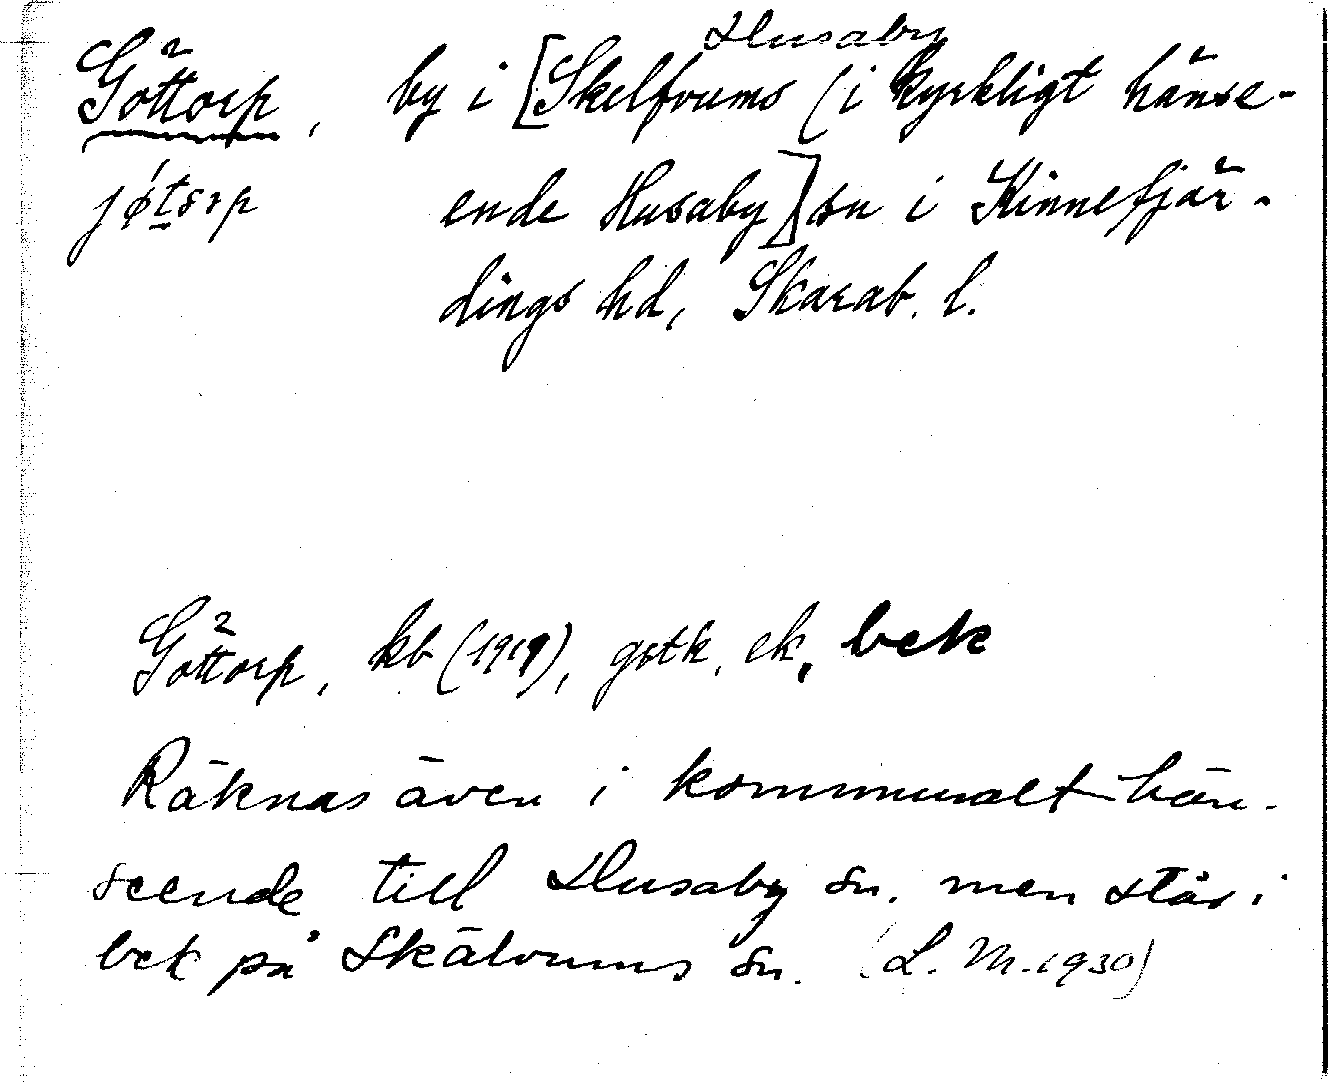 Husaby
Göttorp, by i [Skelfvums (i kyrkligt hänse-
jøtorp ende Husaby] sn i Kinnefjär-
dings hd, Skarab. l.
Göttorp, kb (1919), gstk, ek, bek
Räknas även i kommunalt hän-
seende till Husaby sn. men står i
bek på Skälvums sn. (L. M. 1930)